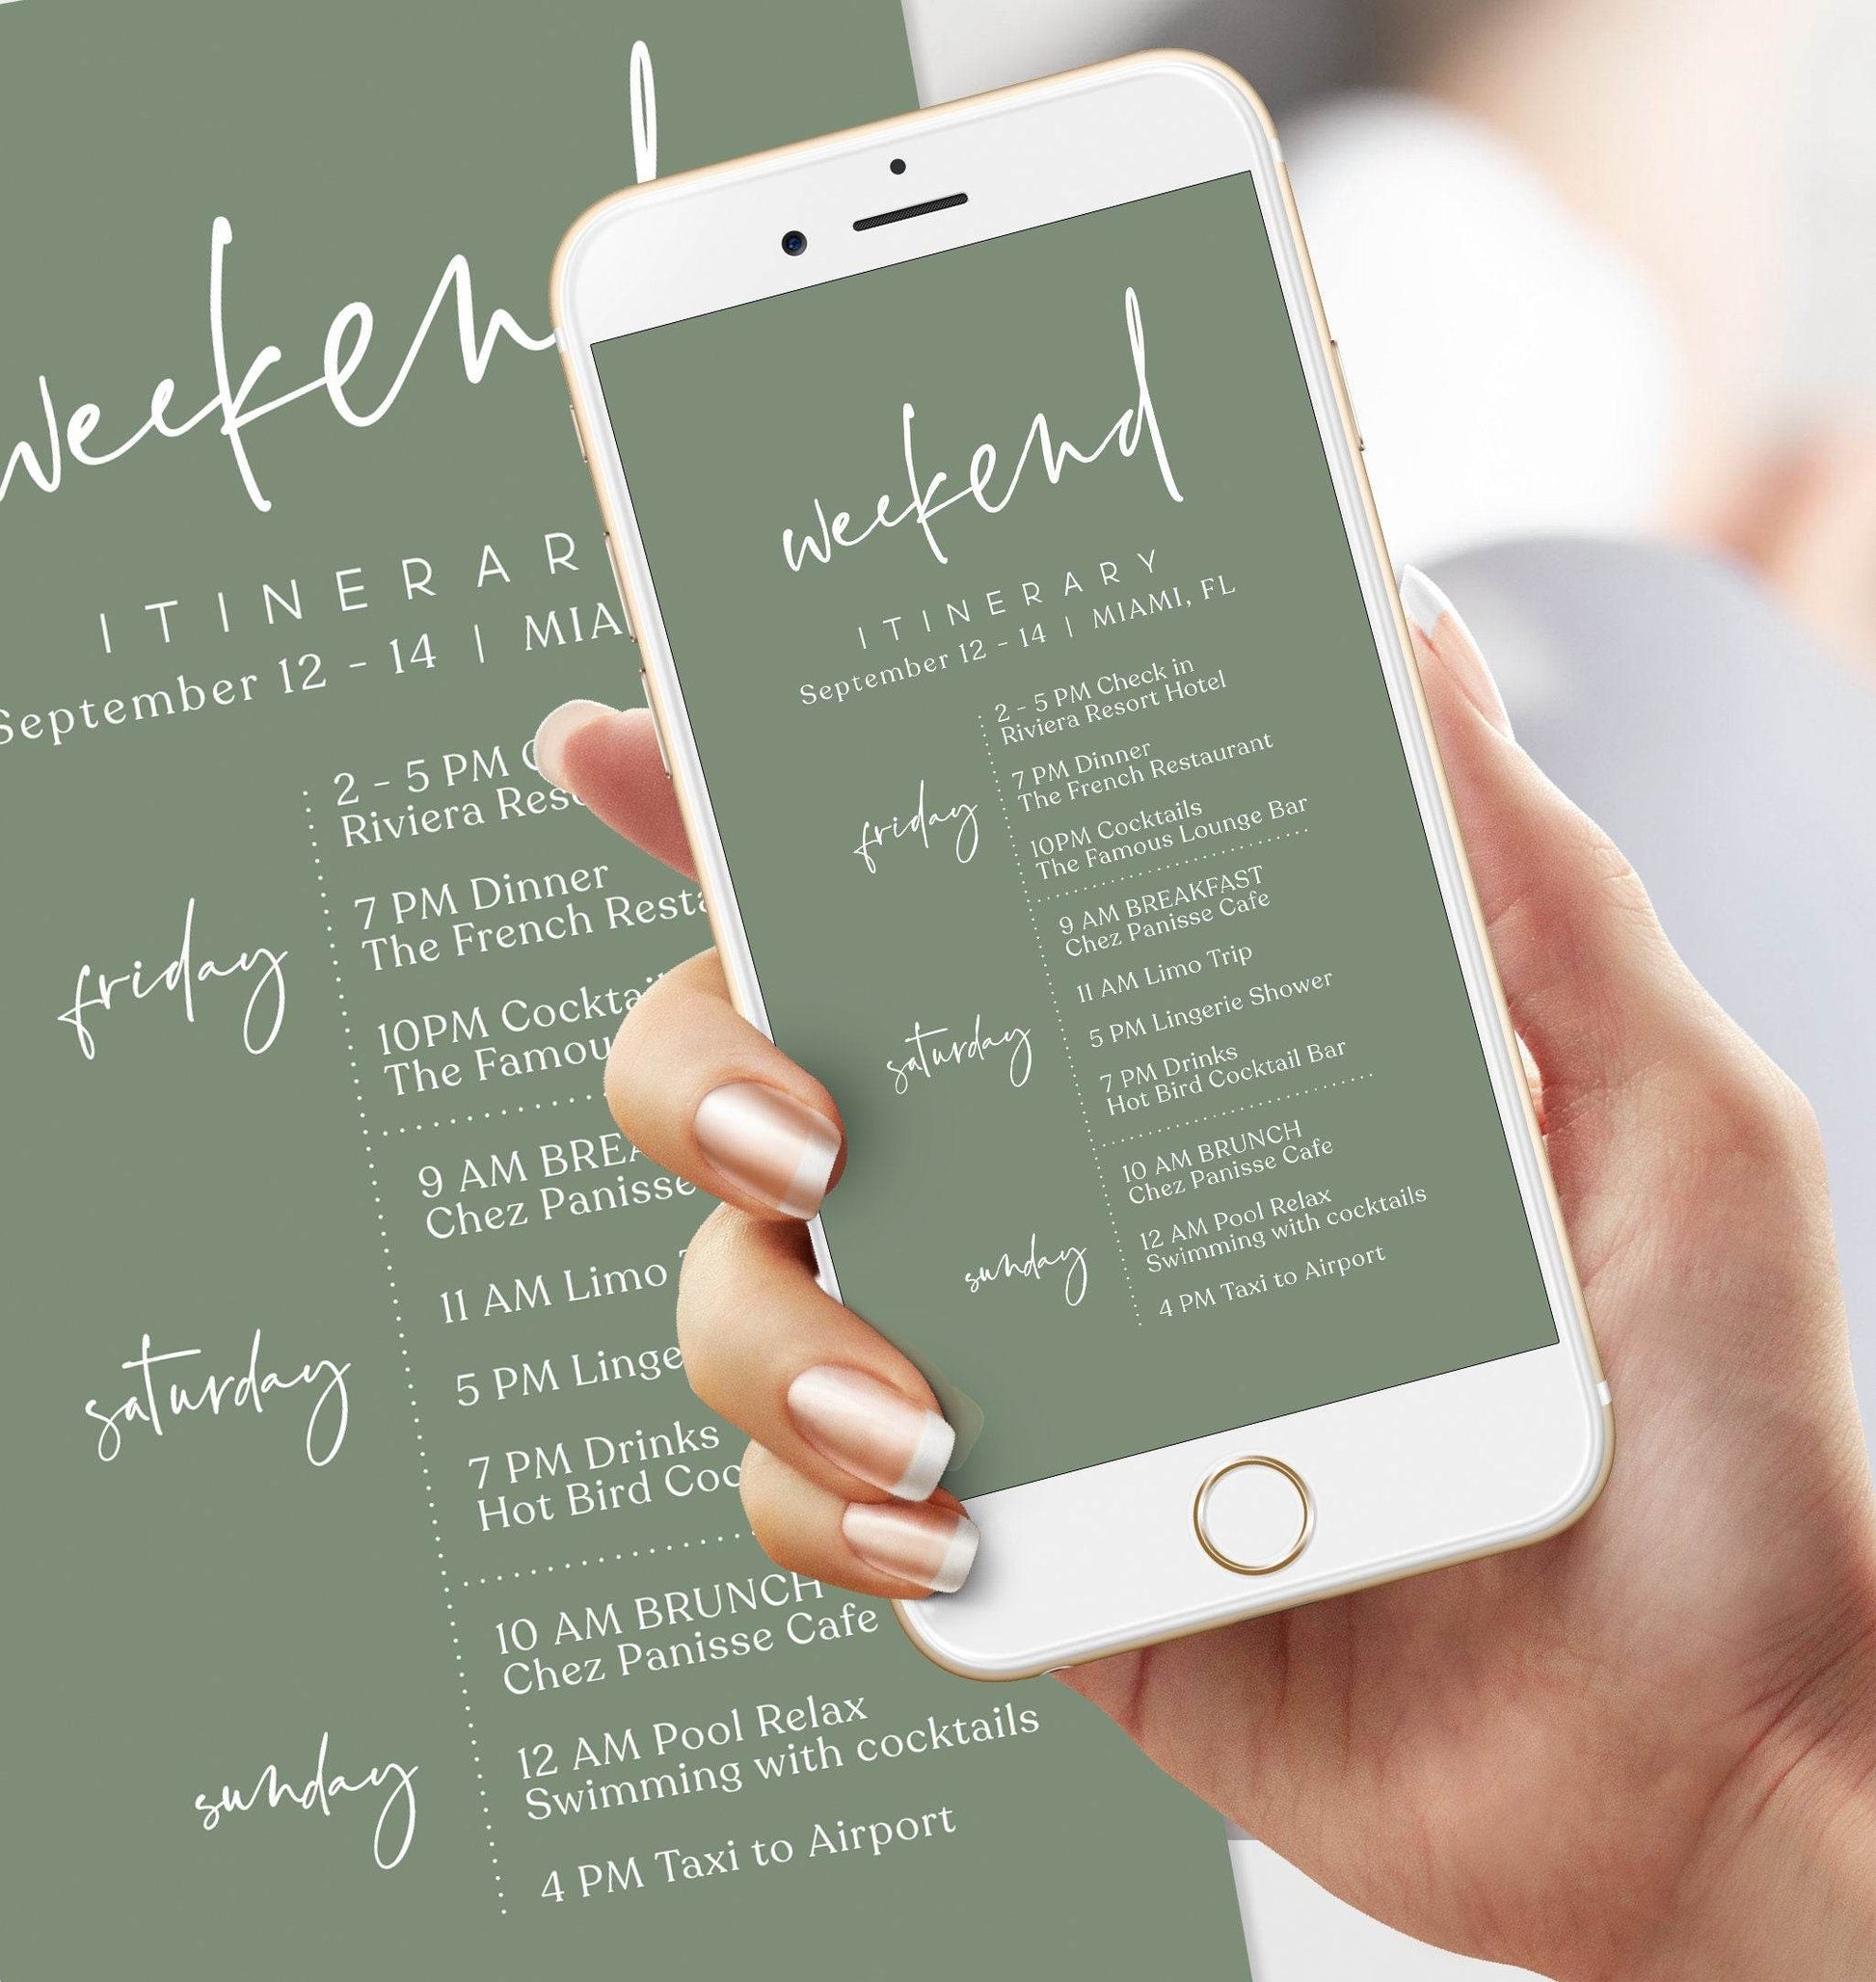 weeken
ITINERAR
September 12 - 14 | MIA
friday
2 - 5 PM
Riviera Reso
7 PM Dinner
The French Resta
10PM Cocktail
The Famou
saturday
9 AM BREA
Chez Panisse
11 AM Limo
5 PM Linge
7 PM Drinks
Hot Bird Coc
sunday
10 AM BRUNCH
Chez Panisse Cafe
12 AM Pool Relax
Swimming with cocktails
4 PM Taxi to Airport
weekend
ITINERARY
September 12 - 14 | MIAMI, FL
friday
2 - 5 PM Check in
Riviera Resort Hotel
7 PM Dinner
The French Restaurant
10PM Cocktails
The Famous Lounge Bar
saturday
9 AM BREAKFAST
Chez Panisse Cafe
11 AM Limo Trip
5 PM Lingerie Shower
7 PM Drinks
Hot Bird Cocktail Bar
sunday
10 AM BRUNCH
Chez Panisse Cafe
12 AM Pool Relax
Swimming with cocktails
4 PM Taxi to Airport